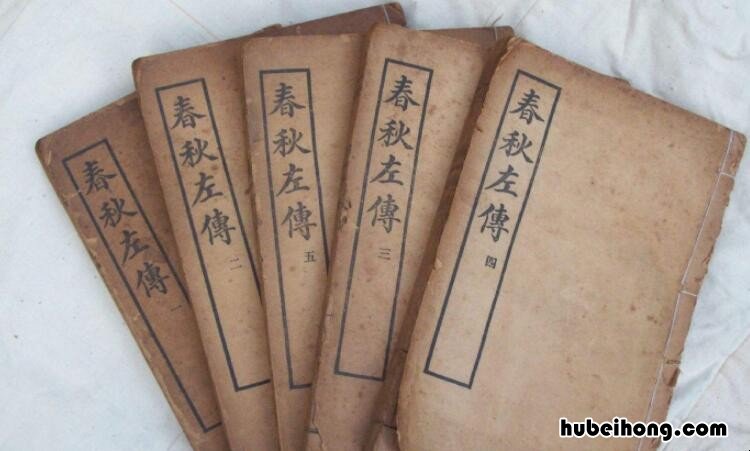 春秋左傳 一
春秋左傳 二
春秋左傳 五
春秋左傳 三
春秋左傳 四
hubeihong.com